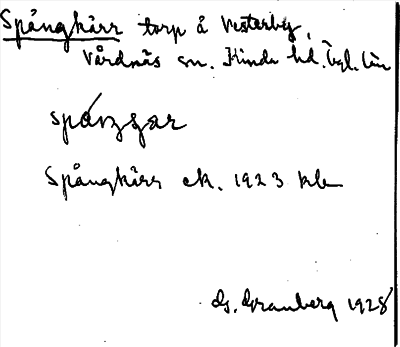 Spångkärr torp å Västerby,
Vårdnäs sn. Kinda hd. Ögl. län
spáŋgar
Spångkärr ek. 1923 kb
G. Granberg 1928